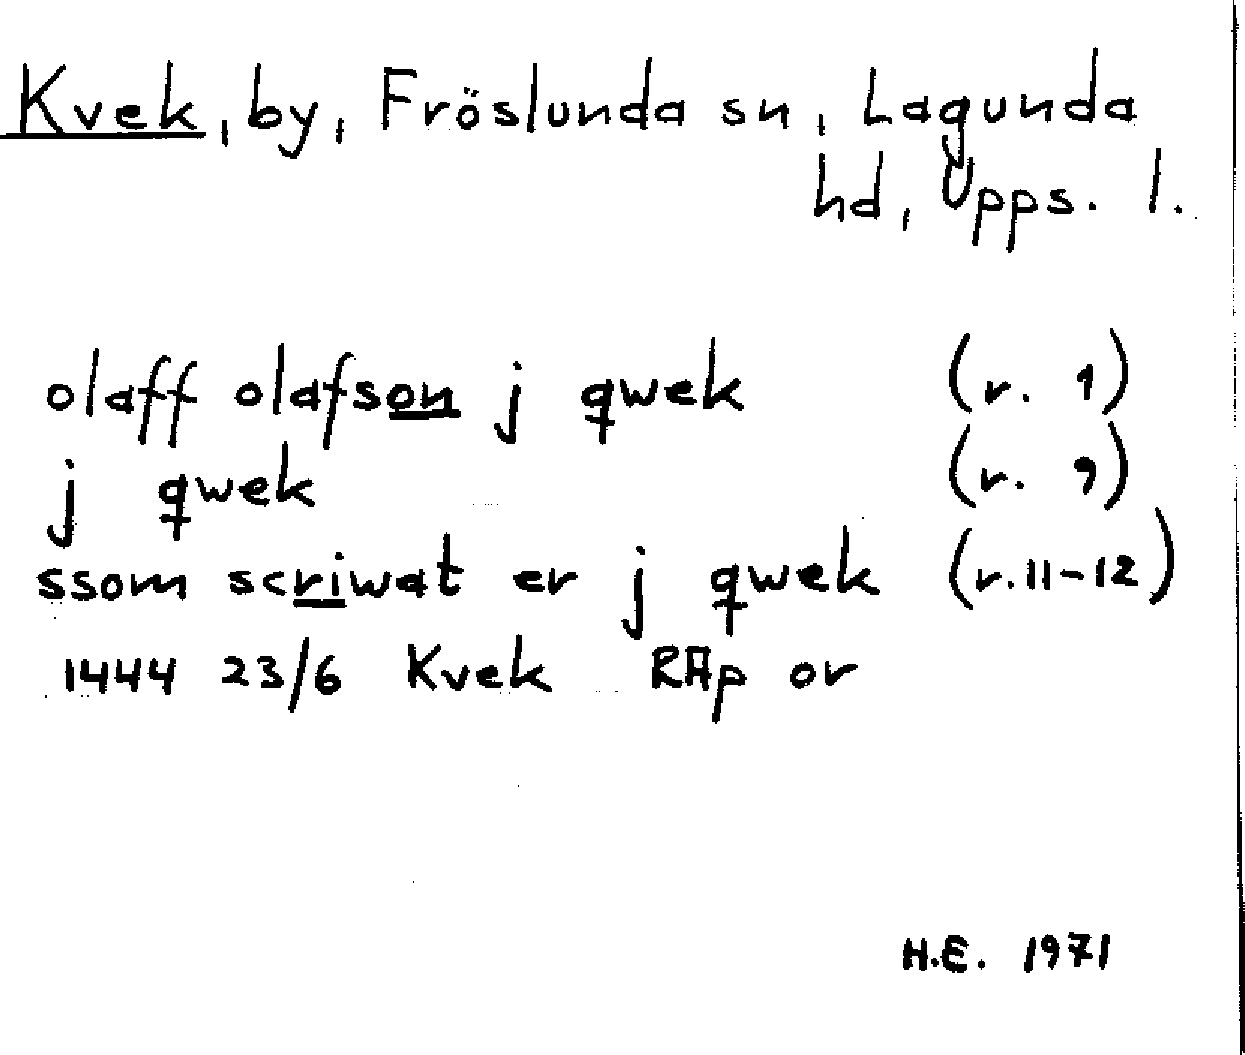 Kvek, by, Fröslunda sn, Lagunda
hd, Upps. l.
olaff olafson j qwek (r. 1)
j qwek (r. 9)
ssom scriwat er j qwek (r. 11-12)
1444 23/6 Kvek RAp or
H.E. 1971